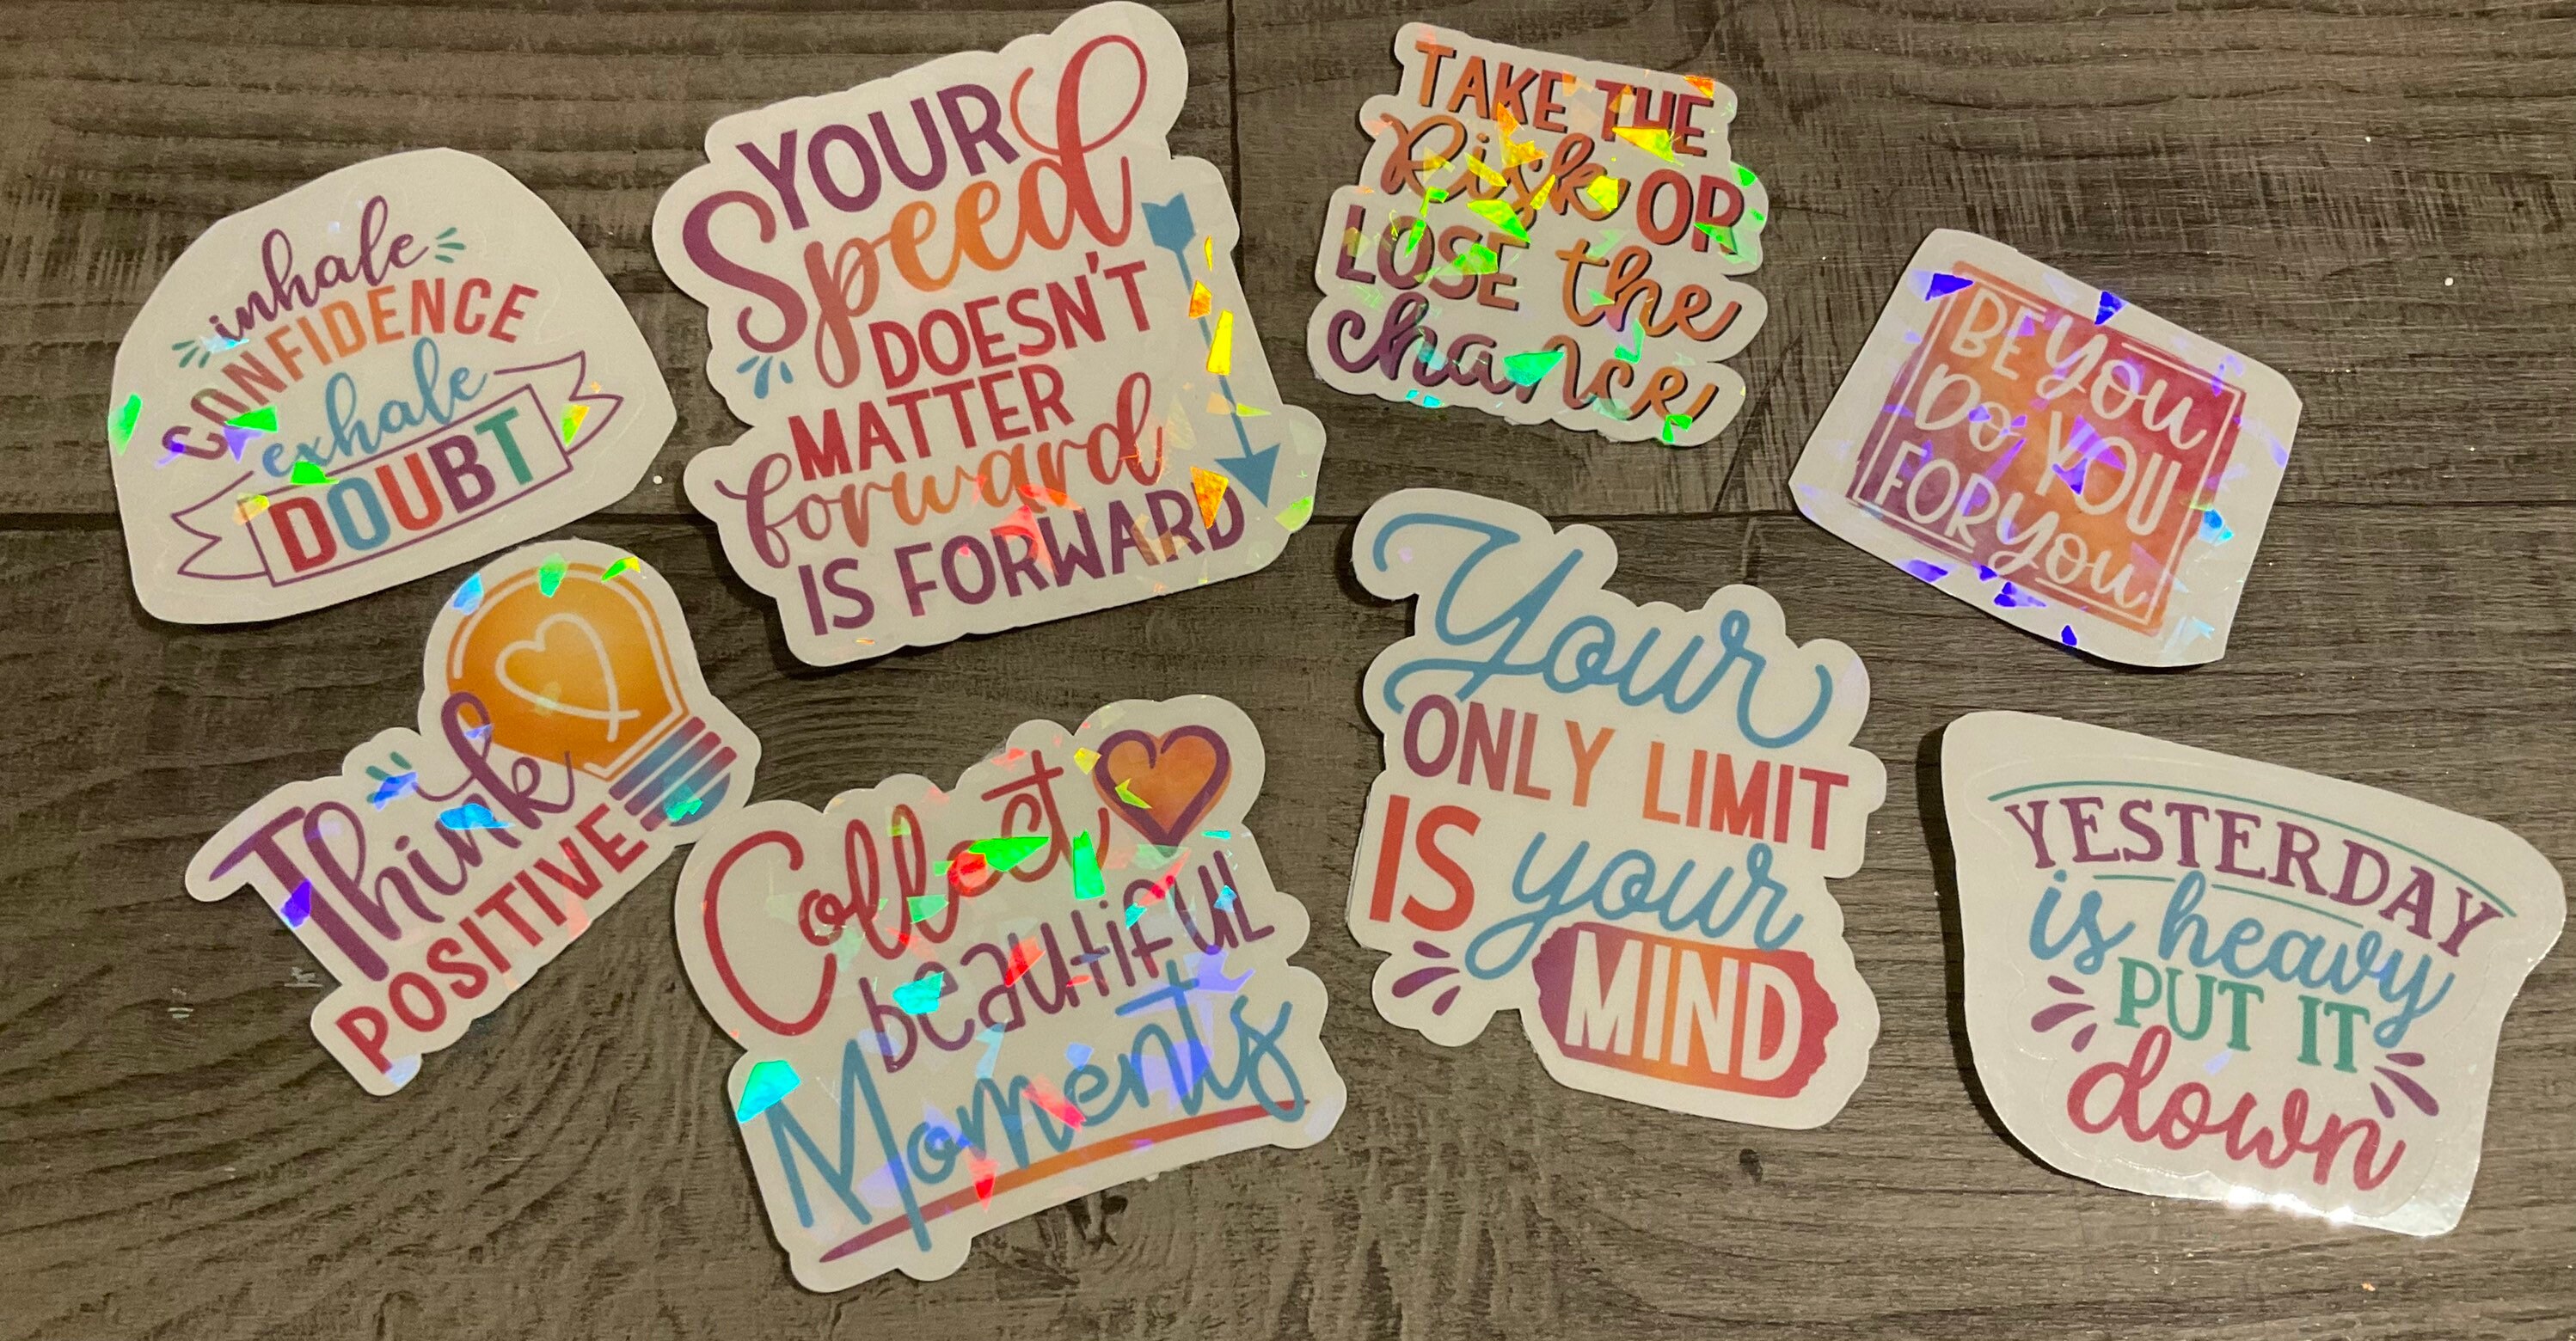 inhale
CONFIDENCE
exhale
DOUBT
YOUR
Speed
DOESN'T
MATTER
forward
IS FORWARD
TAKE THE
Risk OR
LOSE the
chance
BE You
Do YOU
FOR You
Think
POSITIVE
Collect
beautiful
Moments
Your
ONLY LIMIT
IS your
MIND
YESTERDAY
is heavy
PUT IT
down